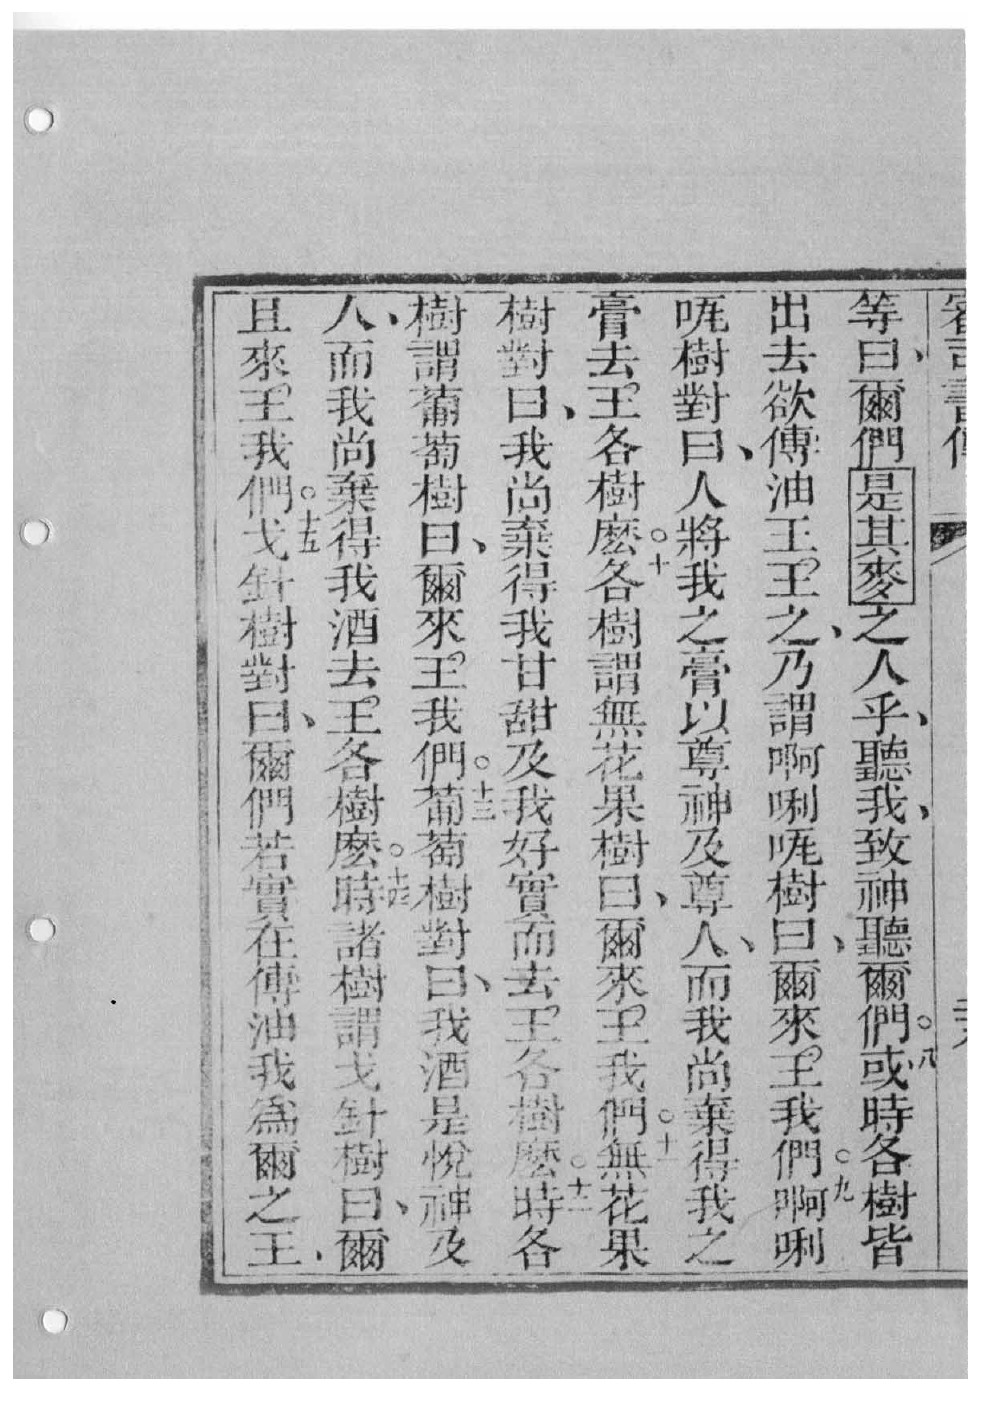 審司書傳
等曰、爾們是其麥之人乎、聽我、致神聽爾們。八或時各樹皆
出去欲傅油王王之、乃謂啊唎㖠樹曰、爾來王我們。九啊唎
㖠樹對曰、人將我之膏以尊神及尊人、而我尚棄得我之
膏去王各樹麼。十各樹謂無花果樹曰、爾來王我們。十一無花果
樹對曰、我尚棄得我甘甜及我好實而去王各樹麼。十二時各
樹謂葡萄樹曰、爾來王我們。十三葡萄樹對曰、我酒是悅神及
人、而我尚棄得我酒去王各樹麼。十四時諸樹謂戈針樹曰、爾
且來王我們。十五戈針樹對曰、爾們若實在傅油我為爾之王、